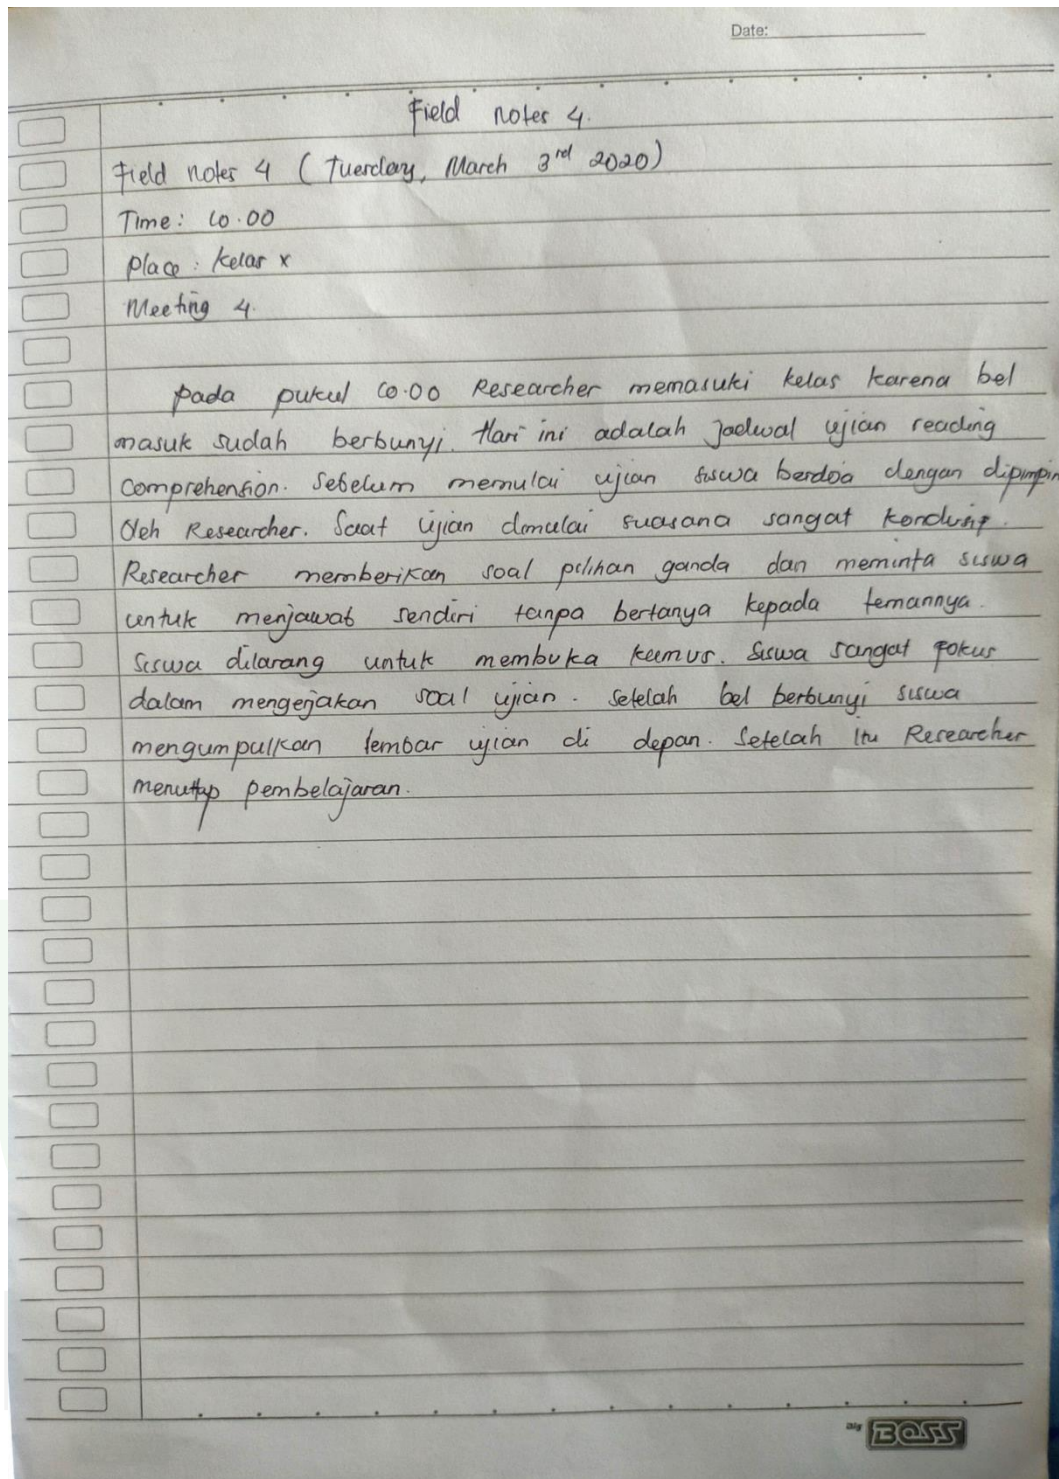 Date:
Field notes 4.
Field notes 4 (Tuesday, March 3rd 2020)
Time: 10.00
Place: Kelas X
Meeting 4.
Pada pukul 10.00 Researcher memasuki kelas karena bel
masuk sudah berbunyi. Hari ini adalah jadwal ujian reading
comprehension. Sebelum memulai ujian siswa berdoa dengan dipimpin
Oleh Researcher. Saat ujian dimulai suasana sangat kondusif.
Researcher memberikan soal pilihan ganda dan meminta siswa
untuk menjawab sendiri tanpa bertanya kepada temannya.
Siswa dilarang untuk membuka kamus. Siswa sangat fokus
dalam mengerjakan soal ujian. Setelah bel berbunyi siswa
mengumpulkan lembar ujian di depan. Setelah itu Researcher
menutup pembelajaran.
Big BOSS